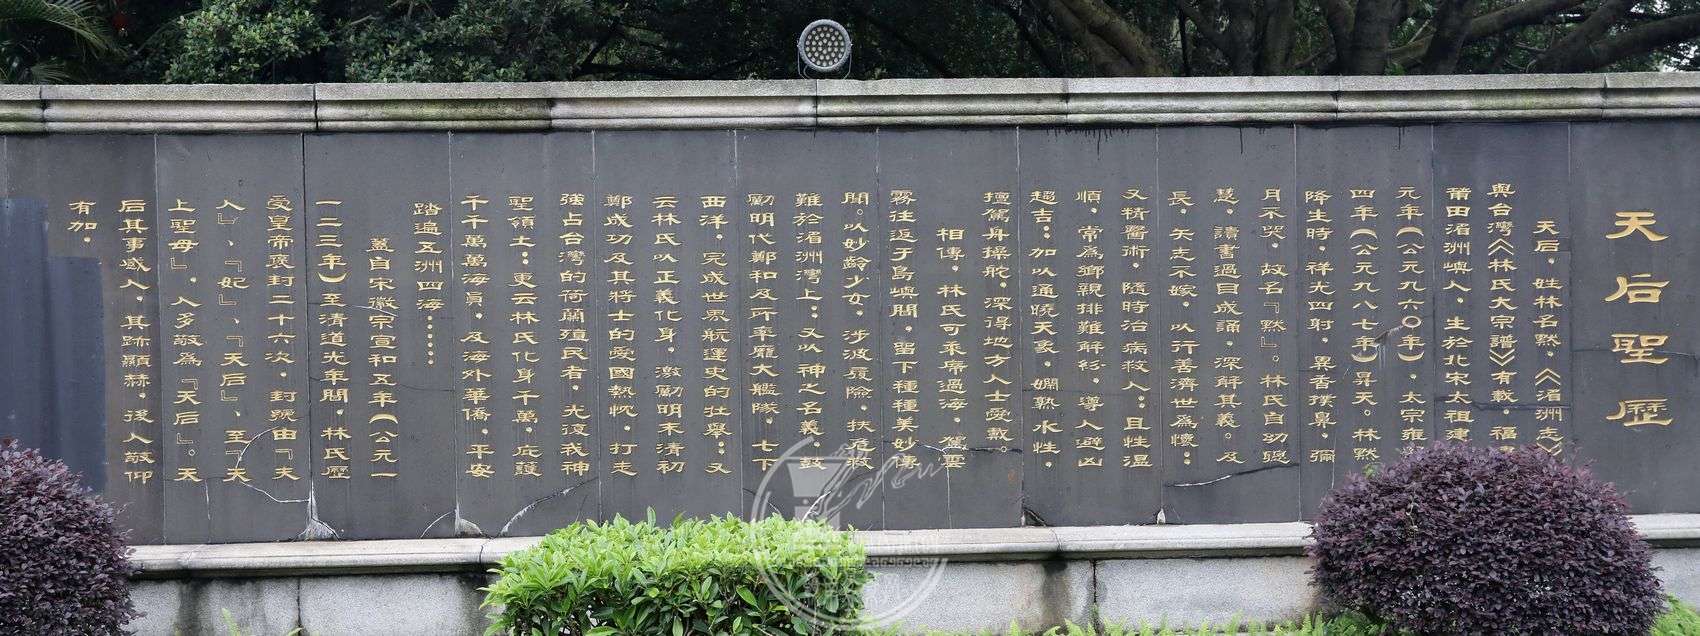 天后聖歷
天后，姓林名黙，《湄洲志》
與台灣《林氏大宗譜》有載，福
莆田湄洲嶼人，生於北宋太祖建
元年（公元九六〇年），太宗雍
四年（公元九八七年）昇天。林黙
降生時，祥光四射，異香撲鼻，彌
月不哭，故名『黙』。林氏自幼聰
慧，讀書過目成誦，深解其義。及
長，矢志不嫁，以行善濟世為懷；
又精醫術，隨時治病救人；且性溫
順，常為鄉親排難解紛，導人避凶
趨吉；加以通曉天象，嫻熟水性，
擅駕舟操舵，深得地方人士愛戴。
相傳，林氏可乘席過海，駕雲
霧往返于島嶼間，留下種種美妙傳
聞。以妙齡少女，涉波履險，扶危救
難於湄洲灣上；又以神之名義，鼓
勵明代鄭和及所率龐大艦隊，七下
西洋，完成世界航運史的壯舉；又
云林氏以正義化身，激勵明末清初
鄭成功及其將士的愛國熱忱，打走
強占台灣的荷蘭殖民者，光復我神
聖領土；更云林氏化身千萬，庇護
千千萬萬海員，及海外華僑，平安
踏遍五洲四海……
蓋自宋徽宗宣和五年（公元一
一二三年）至清道光年間，林氏歷
受皇帝褒封二十六次，封號由『夫
人』、『妃』、『天后』、至『天
上聖母』，人多敬為『天后』。天
后其事感人，其跡顯赫，後人敬仰
有加。